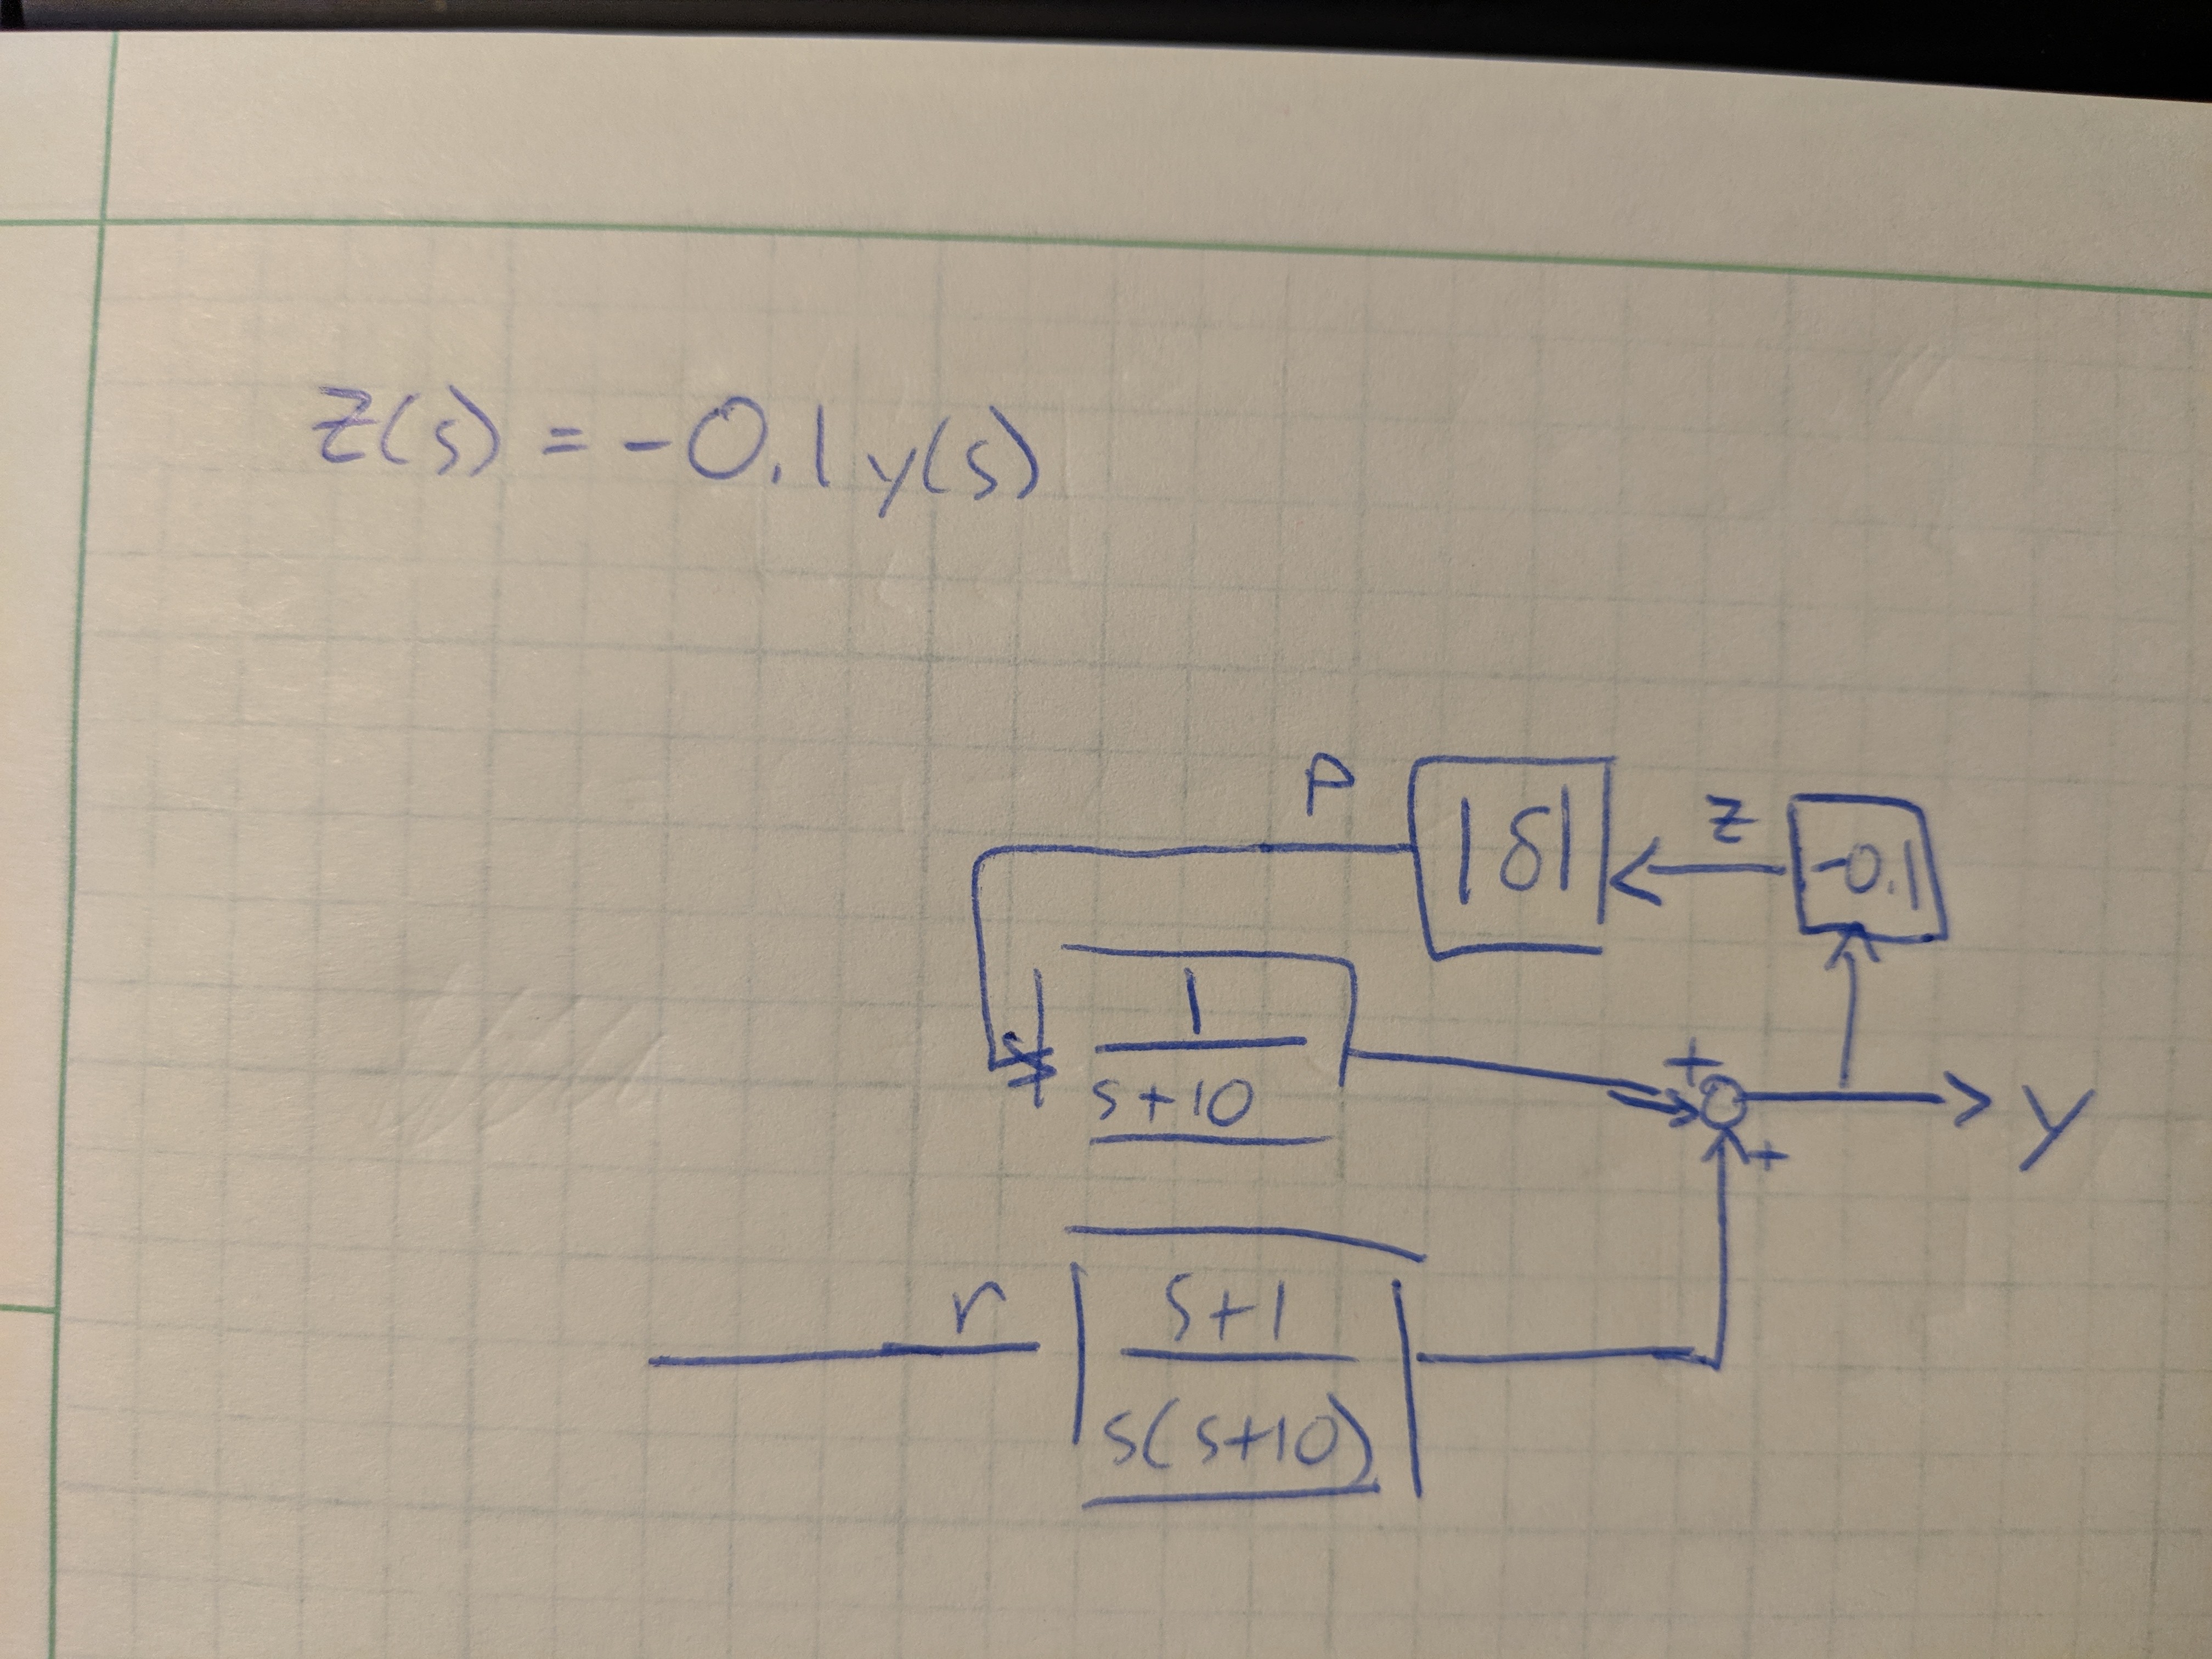 z(s) = -0.1 y(s)
P
|δ|
z
-0.1
1
s+10
+
y
+
r
s+1
s(s+10)